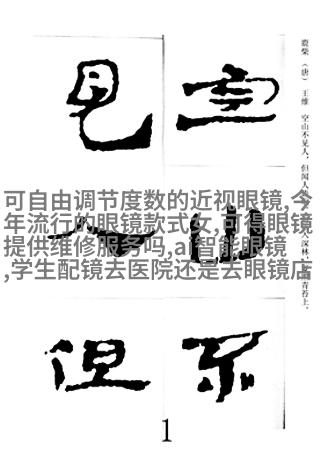 鹿柴（唐） 王维 空山不见人，但闻人 入深林， 青苔上。
空山不
見人但
可自由调节度数的近视眼镜,今
年流行的眼镜款式女,可得眼镜
提供维修服务吗,ai智能眼镜
,学生配镜去医院还是去眼镜店
1